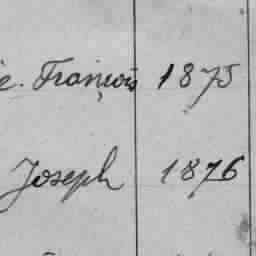 e. François 1875
Joseph 1876